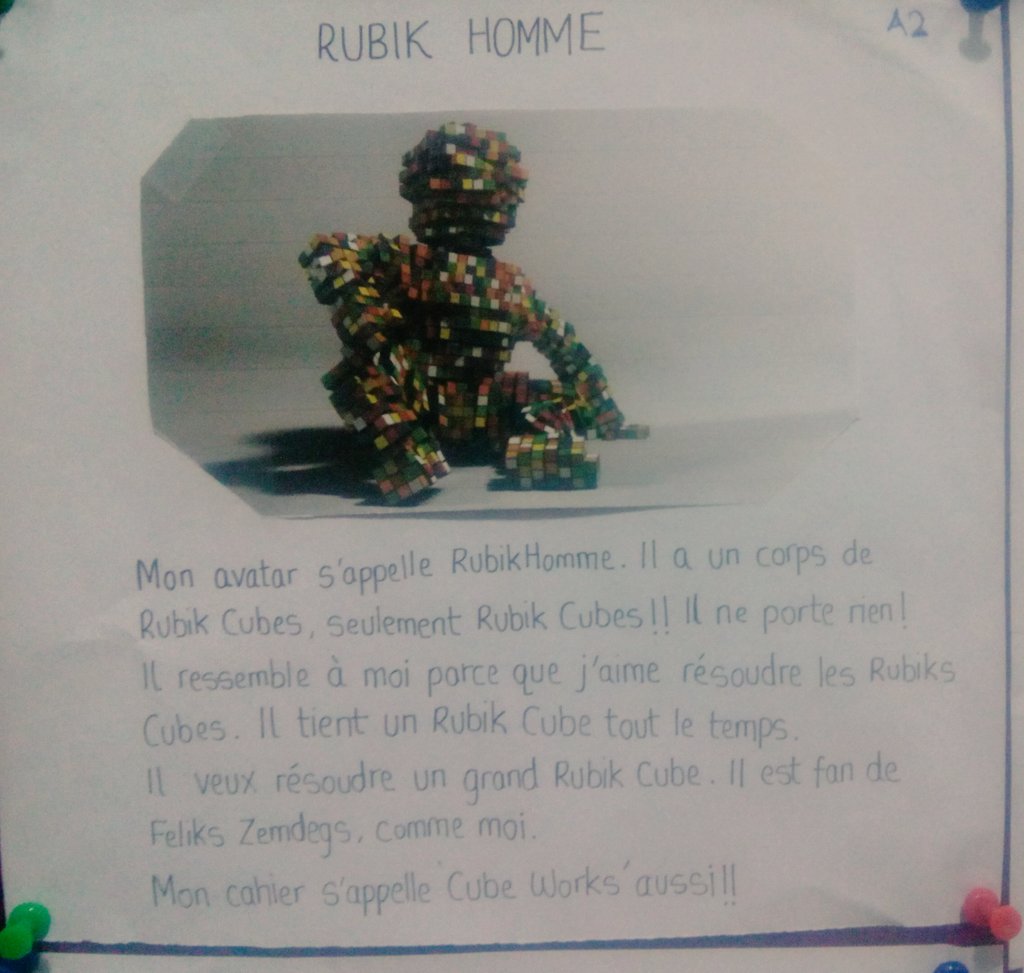 RUBIK HOMME
A2
Mon avatar s'appelle RubikHomme. Il a un corps de
Rubik Cubes, seulement Rubik Cubes!! Il ne porte rien!
Il ressemble à moi parce que j'aime résoudre les Rubiks
Cubes. Il tient un Rubik Cube tout le temps.
Il veux résoudre un grand Rubik Cube. Il est fan de
Feliks Zemdegs, comme moi.
Mon cahier s'appelle 'Cube Works' aussi!!